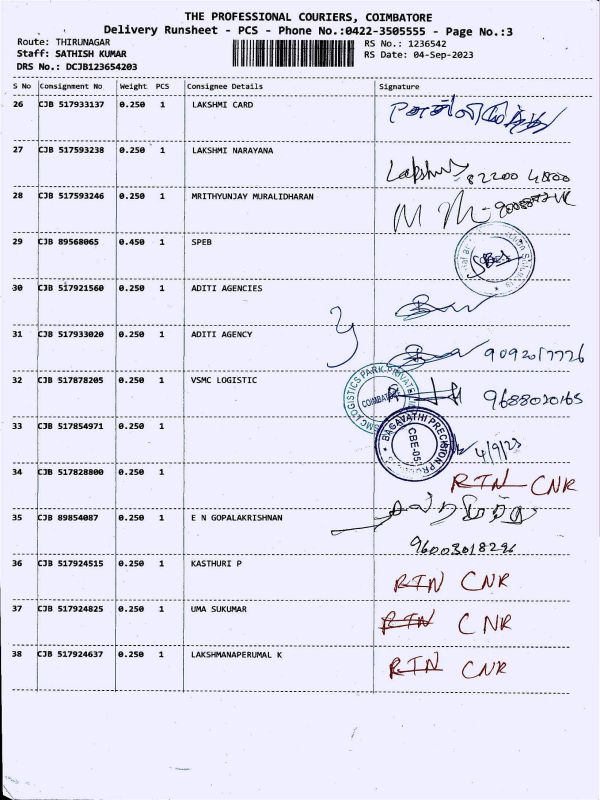 THE PROFESSIONAL COURIERS, COIMBATORE
Delivery Runsheet - PCS - Phone No.:0422-3505555 - Page No.:3
Route: THIRUNAGAR
Staff: SATHISH KUMAR
DRS No.: DCJB123654203
RS No.: 1236542
RS Date: 04-Sep-2023
S No Consignment No Weight PCS Consignee Details Signature
26 CJB 517933137 0.250 1 LAKSHMI CARD
27 CJB 517593238 0.250 1 LAKSHMI NARAYANA
Lakshmi 82200 4800
28 CJB 517593246 0.250 1 MRITHYUNJAY MURALIDHARAN
29 CJB 89568065 0.450 1 SPEB
30 CJB 517921560 0.250 1 ADITI AGENCIES
31 CJB 517933020 0.250 1 ADITI AGENCY
9092017726
32 CJB 517878205 0.250 1 VSMC LOGISTIC
LOGISTICS PARK PRIVATE
9688020165
33 CJB 517854971 0.250 1
BAGAVATHI PRECISION
CBE-05
4/9/23
34 CJB 517828800 0.250 1
RTN CNR
35 CJB 89854087 0.250 1 E N GOPALAKRISHNAN
9600301829
36 CJB 517924515 0.250 1 KASTHURI P RTN CNR
37 CJB 517924825 0.250 1 UMA SUKUMAR RTN CNR
38 CJB 517924637 0.250 1 LAKSHMANAPERUMAL K RTN CNR